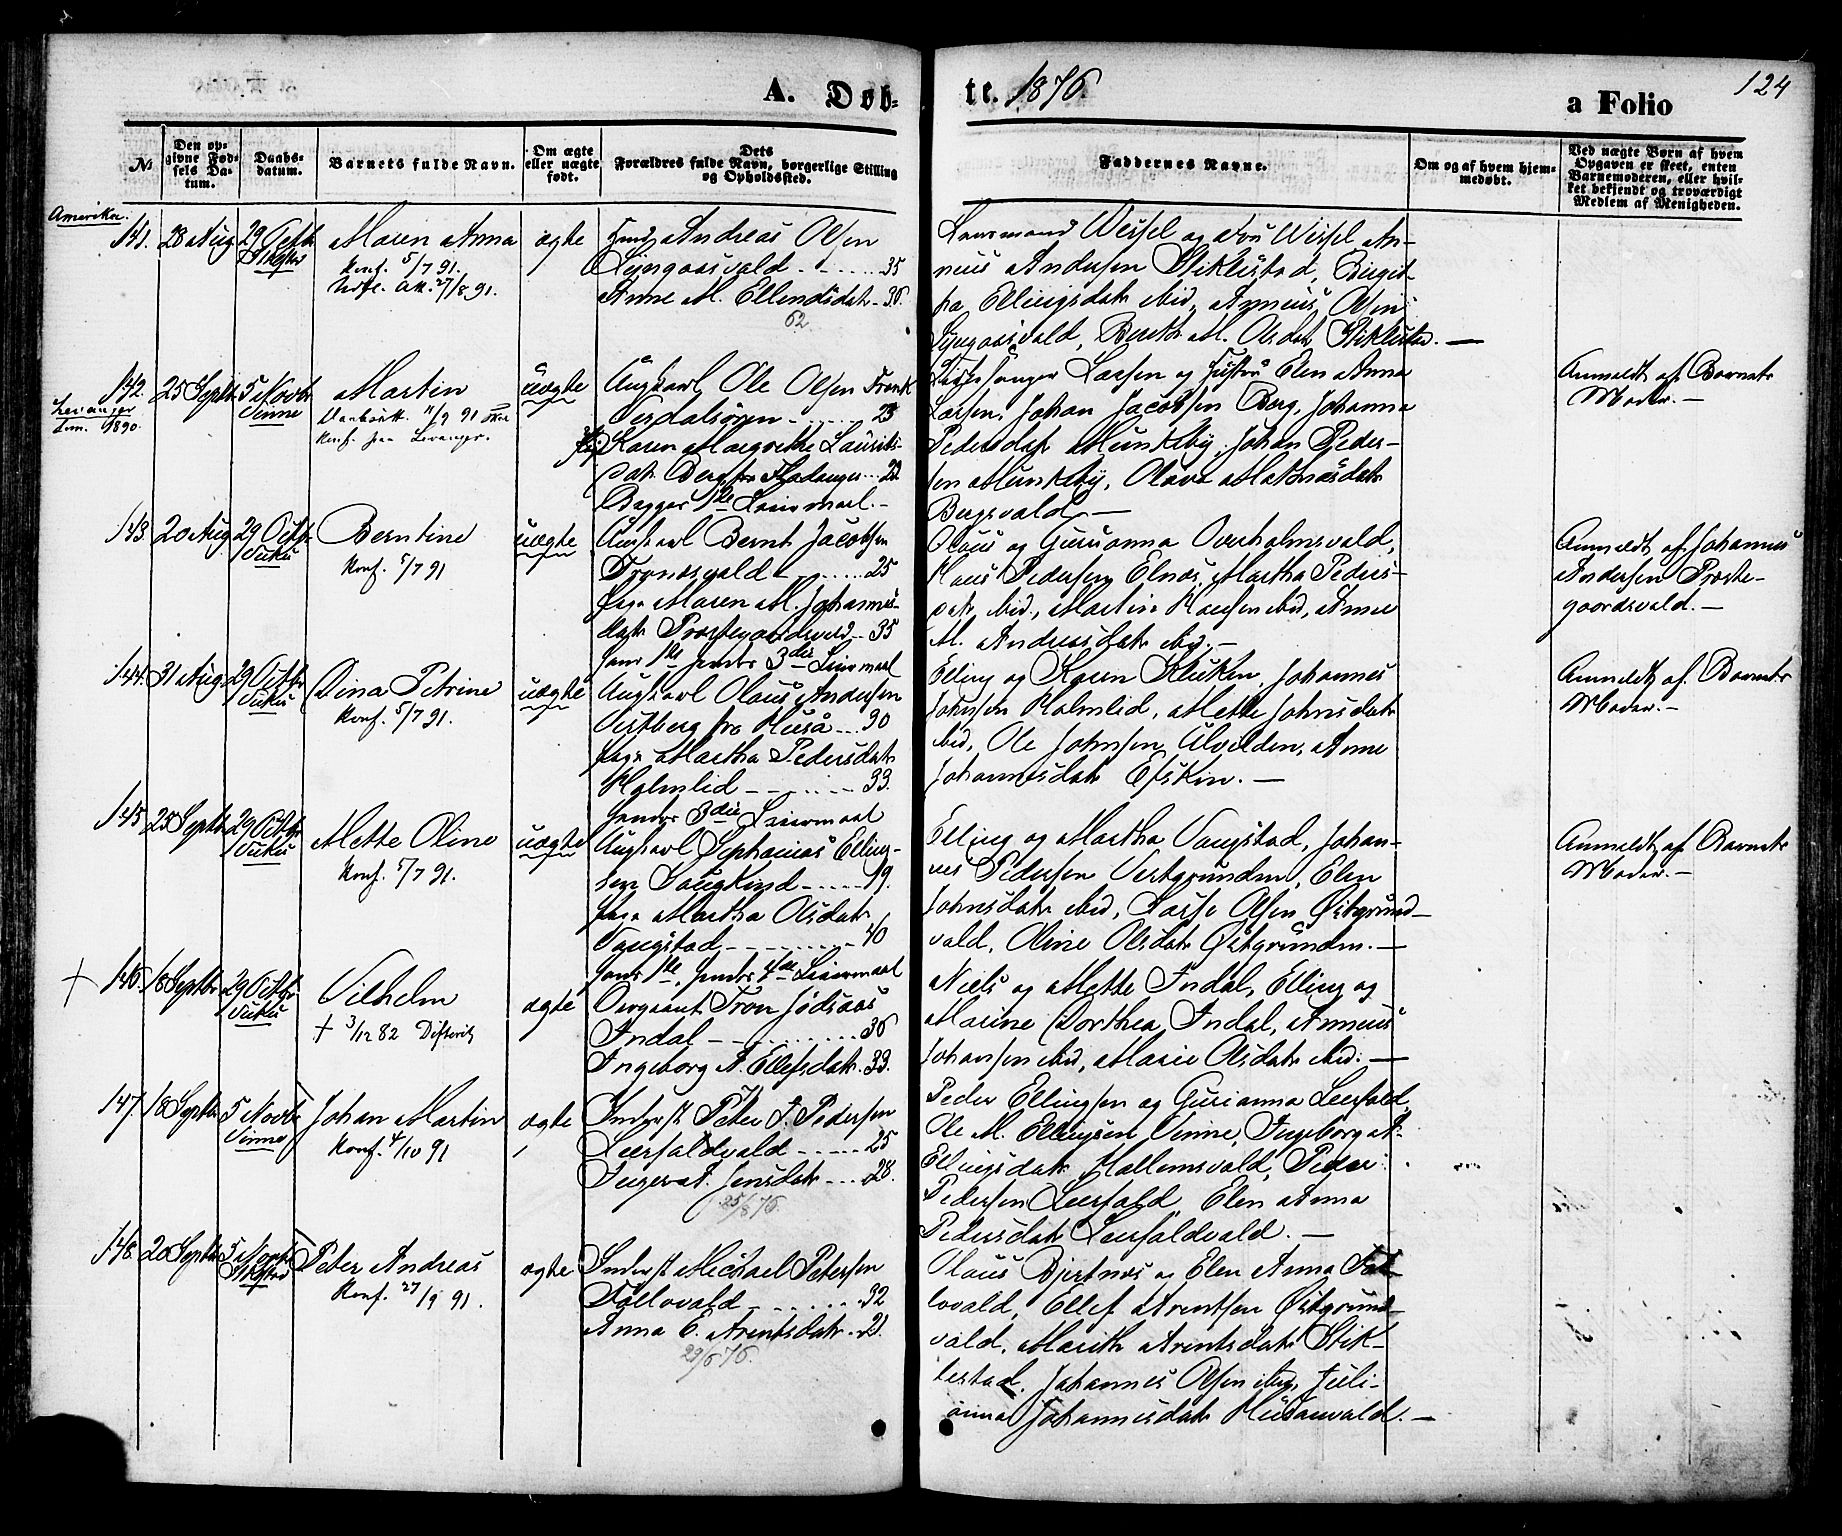 A. Døb-
te. 1876.
124
a Folio
№
Den op-
givne Fød-
sels Da-
tum.
Daabs-
datum.
Barnets fulde Navn.
Om ægte
eller uægte
født.
Dets
Forældres fulde Navn, borgerlige Stilling
og Opholdssted.
Faddernes Navne.
Om og af hvem hjem-
medøbt.
Ved uægte Børn af hvem
Opgaven er skeet, enten
Barnemoderen, eller hvil-
ket bekjendt og troværdigt
Medlem af Menigheden.
Amerika.
141.
28 Aug
29 Octb
Maren Anna
Konf. 5/7 91.
27/8 91.
ægte
Andreas Olsen
35
Anne M. Ellendsdatr 36.
62
Lensmand Wessel og Fru Wessel, An-
neus Andersen Stiklestad, Birgit-
ta Ellingsdatr ibid, Anneus Olsen
Berith M. Olsdatr Stiklestad. —
142.
Levanger
1890.
25 Septbr
5 Novbr
Vinne
Martin
11/9 91
Konf. paa Levanger.
uægte
Ungkarl Ole Olsen
Verdalsøren 23
Karen Margrethe Laurits-
datr Berg fra 22
Begges 1ste Leiermaal. -
Kirkesanger Larsen og Hustru Elen Anna
Larsen, Johan Jacobsen Berg, Johanna
Pedersdatr Munkeby, Johan Peder-
sen Munkeby, Olava
Bergsvald. —
Anmeldt af Barnets
Moder. —
143
20 Aug
29 Octb.
Vuku
Berntine
Konf. 5/7 91
uægte
Ungkarl Bernt Jacobsen
25
Pige Maren M. Johannes-
datr Prestegaardsvald 35
hans 1ste, hendes 3die Leiermaal
Olaus og Gurianna Overholmsvald,
Hans Pedersen Elnes, Martha Peders-
datr ibid., Martin Hansen ibid, Anne
M. Andreasdatr ibid. —
Anmeldt af Johannes
Andersen Preste-
gaardsvald. —
144.
31 Aug.
29 Octbr
Vuku
Dina Petrine
Konf. 5/7 91.
uægte
Ungkarl Olaus Andersen
Vestberg fra 30
Pige Martha Pedersdatr
Holmlid 33.
hendes 3die Leiermaal
Elling og Karen Kluken, Johannes
Johnsen Holmlid, Mette Johnsdatr
ibid, Ole Johnsen Ulvilden, Anne
Johannesdatr Efskin. —
Anmeldt af Barnets
Moder. —
145
25 Septbr
29 Octbr
Vuku
Mette Oline
Konf. 5/7 91.
uægte
Ungkarl Elling-
sen 19.
Pige Martha Olsdatr
Vangstad 40
hans 1ste, hendes 4de Leiermaal
Elling og Martha Vangstad, Johan-
nes Pedersen Vestgrunden, Elen
Johnsdatr ibid, Lasse Olsen Østgrund-
vald, Oline Olsdatr Østgrunden. —
Anmeldt af Barnets
Moder. —
+
146.
18 Septbr
29 Octbr
Vuku
Vilhelm
+ 3/12 82 Difterit
ægte
Sergeant Tron Jødsaas
Indal 36
Ingeborg A. Ellefsdatr 33.
Niels og Mette Indal, Elling og
Marine Dorthea Indal, Anneus
Johansen ibid, Marie Olsdatr ibid. —
147.
18 Septbr
5 Novbr
Vinne
Johan Martin
Konf. 4/10 91
ægte
Inderst Peter J. Pedersen
Leerfaldvald 25
Jensdatr 28.
25/8 76.
Peder Ellingsen og Gurianna Leerfald,
Ole M. Ellingsen Vinne, Ingeborg A.
Ellingsdatr Hallemsvald, Peder
Pedersen Leerfald, Elen Anna
Pedersdatr Leerfaldvald. —
148.
20 Septbr
5 Novbr
Peter Andreas
Konf. 27/9 91.
ægte
Inderst Michael Petersen
Follovald 32
Anna E. Arentsdatr 21.
29/6 76.
Olaus Bjertnes og Elen Anna Fol-
lovald, Ellef Arentsen Østgrund-
vald, Marith Arentsdatr Stik-
lestad, Johannes Olsen Juli-
anna Johannesdatr —